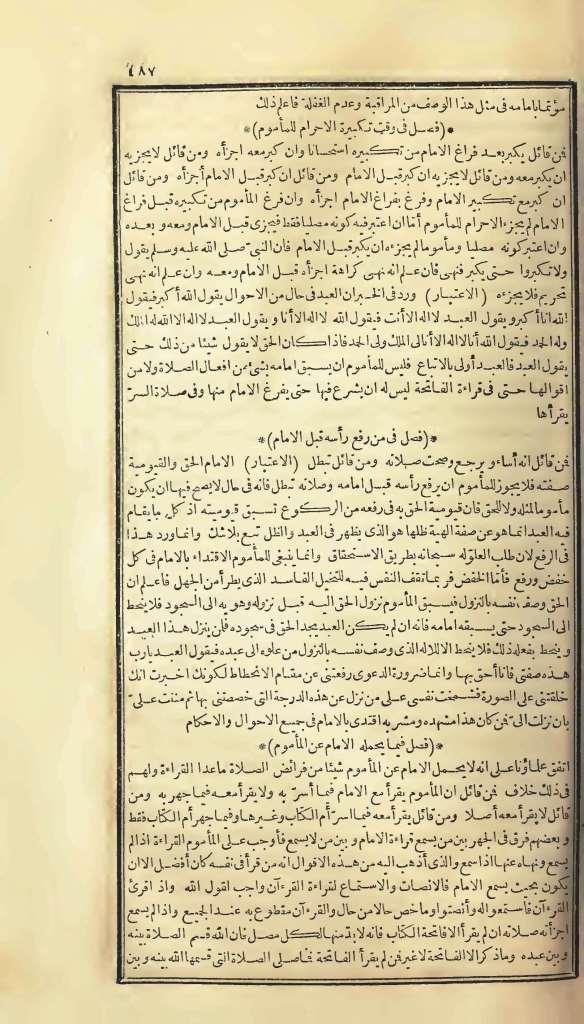 ٤٨٧
مؤتما بامامه في مثل هذا الوصف من المراقبة وعدم الغفلة فاعلم ذلك
*(فصل في وقت تكبيرة الاحرام للمأموم)*
فمن قائل يكبر بعد فراغ الامام من تكبيره استحسانا وان كبر معه اجزأه ومن قائل لا يجزيه
ان يكبر معه ومن قائل لا يجزيه ان كبر قبل الامام ومن قائل ان كبر قبل الامام أجزأه ومن قائل
ان كبر مع تكبير الامام وفرغ بفراغ الامام اجزأه وان فرغ المأموم من تكبيره قبل فراغ
الامام لم يجزه الاحرام للمأموم أتما ان اعتبر فيه كونه مصليا فقط فيجزى قبل الامام ومعه وبعده
وان اعتبر كونه مصليا ومأموما لم يجزه ان يكبر قبل الامام فان النبي صلى الله عليه وسلم يقول
ولا تكبروا حتى يكبر فنهى فان علم انه نهى كراهة اجزأه قبل الامام ومعه وان علم انه نهى
تحريم فلا يجزءه (الاعتبار) ورد في الخبر ان العبد في حال من الاحوال يقول الله أكبر فيقول
الله انا أكبر ويقول العبد لا اله الا أنت فيقول الله لا اله الا أنا ويقول العبد لا اله الا الله له الملك
وله الحمد فيقول الله أنا لا اله الا أنا لى الملك ولى الحمد فاذا كان الحق لا يقول شيئا من ذلك حتى
يقول العبد فالعبد أولى بالاتباع فليس للمأموم ان يسبق امامه بشئ من افعال الصلاة ولا من
اقوالها حتى في قراءة الفاتحة ليس له ان يشرع فيها حتى يفرغ الامام منها وفي صلاة السر
يقرأها
*(فصل في من رفع رأسه قبل الامام)*
فمن قائل انه أساء ويرجع وصحت صلاته ومن قائل تبطل (الاعتبار) الامام الحق والقيومية
صفته فلا يجوز للمأموم ان يرفع رأسه قبل امامه وصلاته تبطل فانه في حال لا يصح فيها ان يكون
مأموما لمثله ولا للحق فان قيومية الحق به في رفعه من الركوع تسبق قيوميته اذ كل ما يقام
فيه العبد انما هو عن صفة الهية ظلها هو الذي يظهر في العبد والظل تبع بلا شك وانما ورد هذا
في الرفع لان طلب العلو له سبحانه بطريق الاستحقاق وانما ينبغي للمأموم الاقتداء بالامام في كل
خفض ورفع فأما الخفض فربما تقف النفس فيه للتخيل الفاسد الذي يطرأ من الجهل فاعلم ان
الحق وصف نفسه بالنزول فيسبق المأموم نزول الحق اليه قبل نزوله وهو به الى السجود فلا ينحط
الى السجود حتى يسبقه امامه فانه ان لم يكن العبد يجد الحق في سجوده فلمن ينزل هذا العبد
وينحط بفعله ذلك فلا ينحط الا لاله الذي وصف نفسه بالنزول من علوه الى عبده فيقول العبد يا رب
هذه صفتى فانا أحق بها وانما ضرورة الدعوى رفعتني عن مقام الانحطاط لكونك اخبرت انك
خلقتني على الصورة فشمخت نفسي على من نزل عن هذه الدرجة التي خصصتني بها ثم مننت على
بان نزلت الى فمن كان هذا مشهده ومشربه اقتدى بالامام في جميع الاحوال والاحكام
*(فصل فيما يحمله الامام عن المأموم)*
اتفق علماؤنا على انه لا يحمل الامام عن المأموم شيئا من فرائض الصلاة ما عدا القراءة ولهم
في ذلك خلاف فمن قائل ان المأموم يقرأ مع الامام فيما أسر به ولا يقرأ معه فيما جهر به ومن
قائل لا يقرأ معه أصلا ومن قائل يقرأ معه فيما اسر أم الكتاب وغيرها وفيما جهر أم الكتاب فقط
وبعضهم فرق في الجهر بين من يسمع قراءة الامام وبين من لا يسمع فأوجب على المأموم القراءة اذا لم
يسمع ونهاه عنها اذا سمع والذي أذهب اليه من هذه الاقوال انه من قرأ في نفسه كان أفضل الا ان
يكون بحيث يسمع الامام فالانصات والاستماع لقراءة القرءآن واجب لقول الله واذ اقرئ
القرءآن فاستمعوا له وأنصتوا وما خص حالا من حال والقرءآن مقطوع به عند الجميع واذا لم يسمع
اجزأته صلاته ان لم يقرأ الا فاتحة الكتاب فانه لا بد منها لكل مصل فان الله قسم الصلاة بينه
وبين عبده وما ذكر الا الفاتحة لا غير فمن لم يقرأ الفاتحة فما صلى الصلاة التي قسمها الله بينه وبين